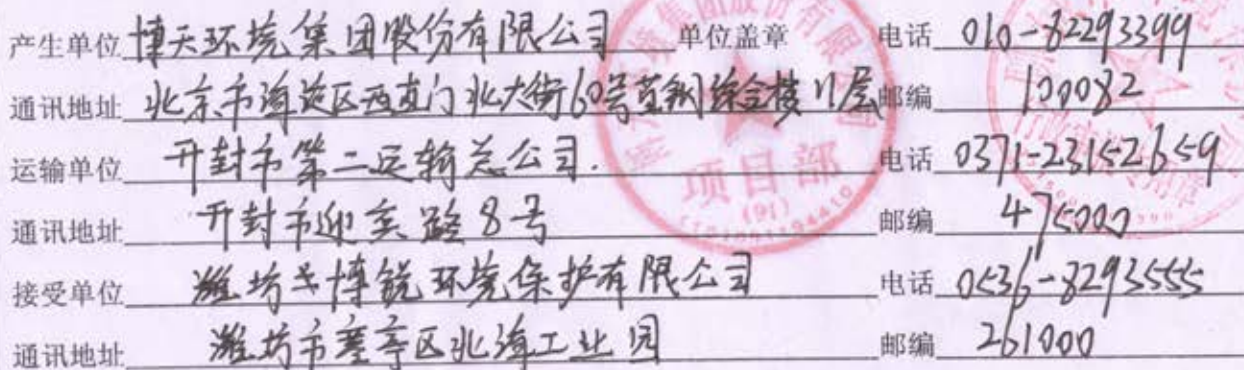 产生单位 博天环境集团股份有限公司 单位盖章 电话 010-82293399
通讯地址 北京市海淀区西直门北大街60号首钢综合楼11层 邮编 100082
运输单位 开封市第二运输总公司. 电话 0371-23152659
通讯地址 开封市迎宾路8号 邮编 475000
接受单位 潍坊市博锐环境保护有限公司 电话 0536-8293555
通讯地址 潍坊市寒亭区北海工业园 邮编 261000
集团股份有限公司
项目部
(91)